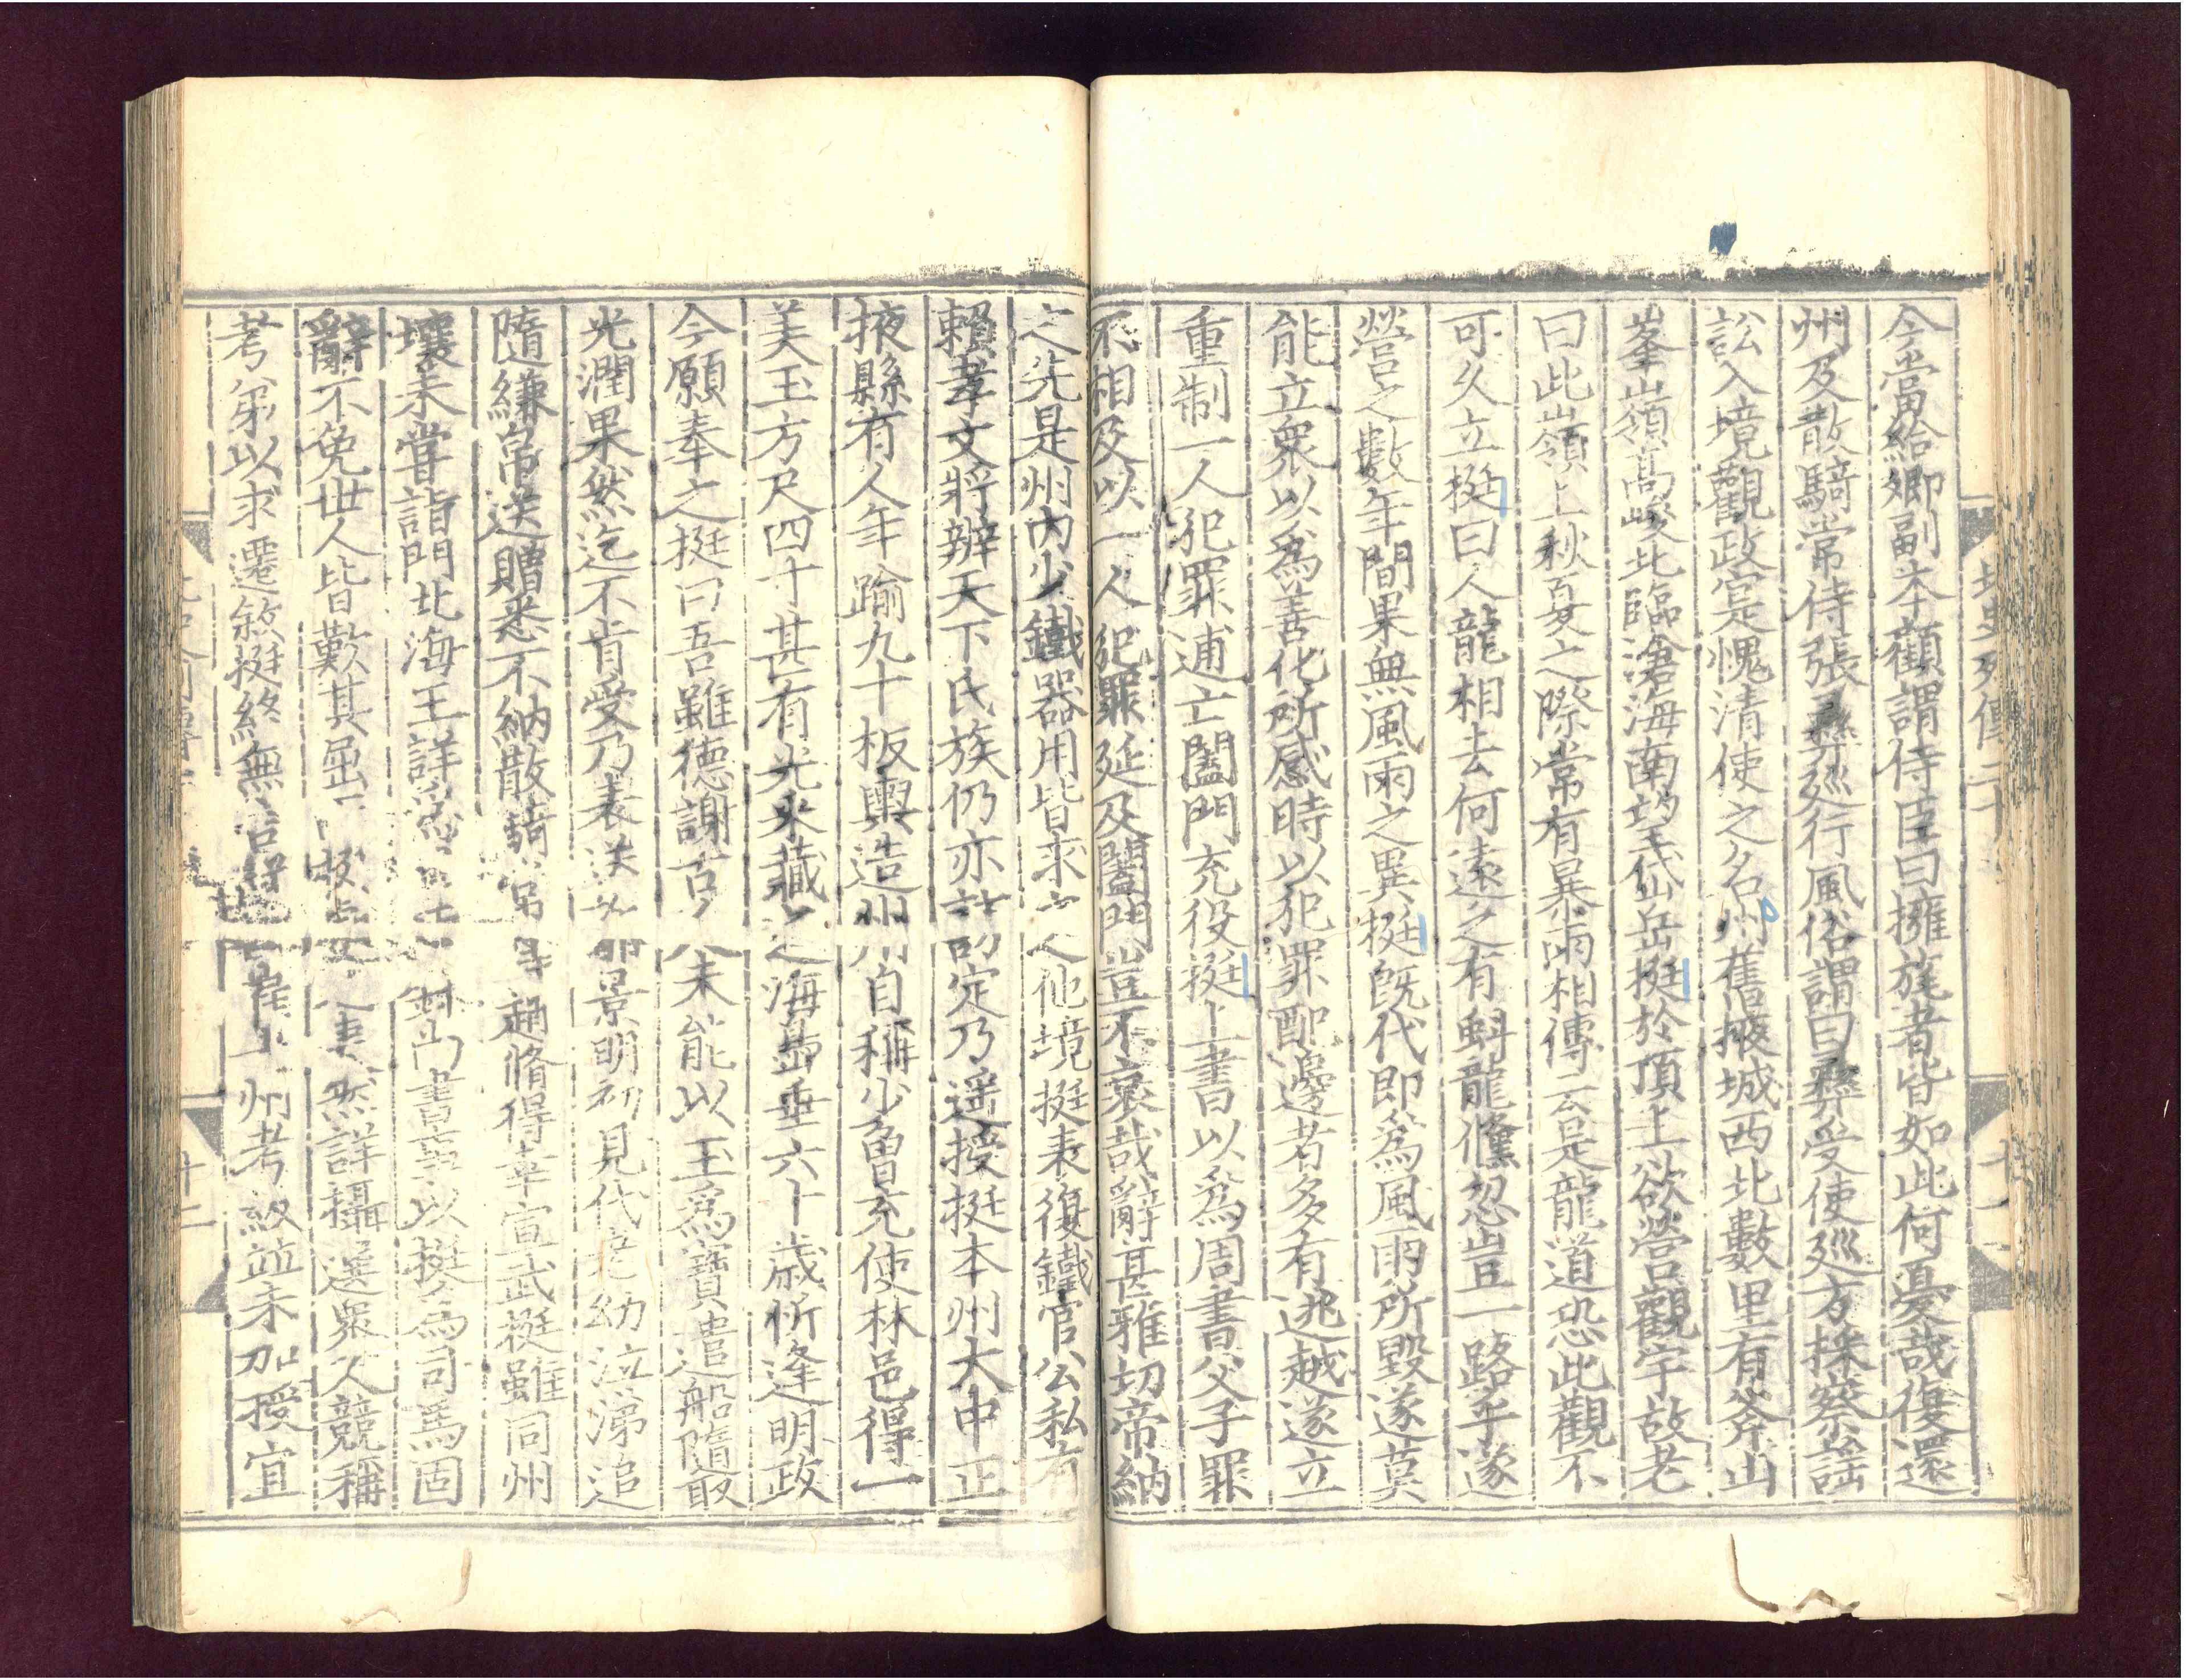 今當給卿副本顧謂侍臣曰擁旄者皆如此何憂哉復還
州及散騎常侍張彝巡行風俗謂曰彝受使巡方採察謠
訟入境觀政寔愧清使之名州舊掖城西北數里有斧山
峯嶺高峻北臨滄海南望岱岳挺於頂上欲營觀宇故老
曰此嶺上秋夏之際常有暴雨相傳云是龍道恐此觀不
可久立挺曰人龍相去何遠之有蚪龍儵忽豈一路乎遂
營之數年間果無風雨之異挺旣代即爲風雨所毀遂莫
能立衆以爲善化所感時以犯罪配邊者多有逃越遂立
重制一人犯罪逋亡闔門充役挺上書以爲周書父子罪
不相及以一人犯罪延及闔門豈不哀哉辭甚雅切帝納
之先是州內少鐵器用皆求之他境挺表復鐵官公私有
賴孝文將辨天下氏族仍亦訪定乃遥授挺本州大中正
掖縣有人年踰九十板輿造州自稱少曾充使林邑得一
美玉方尺四寸甚有光采藏之海島垂六十歲忻逢明政
今願奉之挺曰吾雖德謝古人未能以玉爲寶遣船隨取
光潤果然迄不肯受乃表送 景明初見代老幼泣涕追
隨縑帛送贈悉不納散騎常 趙脩得幸宣武挺雖同州
壤未嘗詣門北海王詳爲 書事以挺爲司馬固
辭不免世人皆歎其屈 然詳攝選衆人競稱
考第以求遷敘挺終無言詳 州考級並未加授宜
北史列傳二十